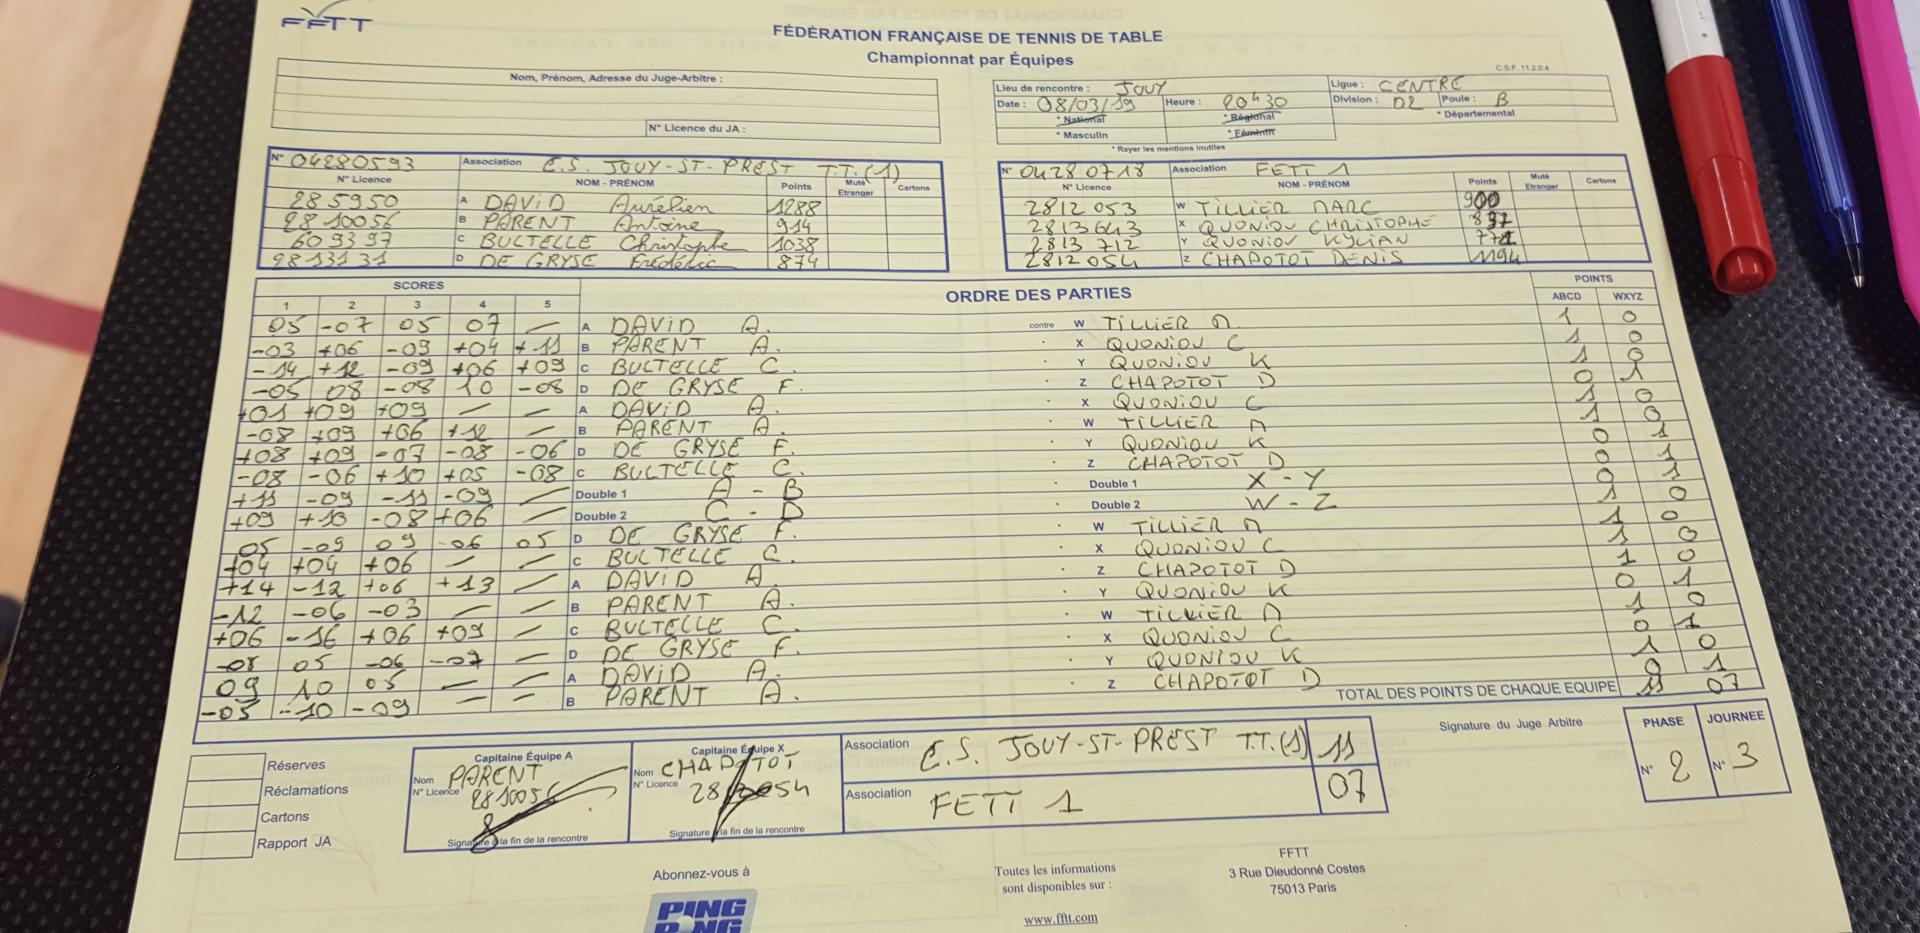 FFTT
FÉDÉRATION FRANÇAISE DE TENNIS DE TABLE
Championnat par Équipes
C.S.F. 11.2.0.4
Nom, Prénom, Adresse du Juge-Arbitre :
N° Licence du JA :
Lieu de rencontre : JOUY Ligue : CENTRE
Date : 08/03/19 Heure : 20h30 Division : D2 Poule : B
* National * Régional * Départemental
* Masculin * Féminin
* Rayer les mentions inutiles
N° 04280593 Association C.S. JOUY-ST-PREST T.T.(1)
N° Licence NOM - PRÉNOM Points Muté Etranger Cartons
285950 A DAVID Aurélien 1288
2810056 B PARENT Antoine 914
609397 C BULTELLE Christophe 1038
2813131 D DE GRYSE Frédéric 874
N° 04280718 Association FETT 1
N° Licence NOM - PRÉNOM Points Muté Etranger Cartons
2812053 W TILLIER MARC 900
2813643 X QUONIOU CHRISTOPHE 837
2813712 Y QUONIOU KYLIAN
2812054 Z CHAPOTOT DENIS 1194
SCORES ORDRE DES PARTIES POINTS
1 2 3 4 5 ABCD WXYZ
05 -07 05 07 — A DAVID A. contre W TILLIER M 1 0
-03 +06 -09 +04 +11 B PARENT A. X QUONIOU C 1 0
-14 +12 -09 +06 +09 C BULTELLE C. Y QUONIOU K 1 0
-05 08 -08 10 -08 D DE GRYSE F. Z CHAPOTOT D 0 1
+01 +09 +09 — — A DAVID A. X QUONIOU C 1 0
-08 +09 +06 +12 — B PARENT A. W TILLIER M 1 0
+08 +09 -07 -08 -06 D DE GRYSE F. Y QUONIOU K 0 1
-08 -06 +10 +05 -08 C BULTELLE C. Z CHAPOTOT D 0 1
+11 -09 -11 -09 — Double 1 A - B Double 1 X - Y 0 1
+09 +10 -08 +06 — Double 2 C - D Double 2 W - Z 1 0
05 -09 09 -06 05 D DE GRYSE F. W TILLIER M 1 0
+04 +04 +06 — — C BULTELLE C. X QUONIOU C 1 0
+14 -12 +06 +13 — A DAVID A. Z CHAPOTOT D 1 0
-12 -06 -03 — — B PARENT A. Y QUONIOU K 0 1
+06 -16 +06 +09 — C BULTELLE C. W TILLIER M 1 0
-08 05 -06 -07 — D DE GRYSE F. X QUONIOU C 0 1
09 10 05 — — A DAVID A. Y QUONIOU K 1 0
-05 -10 -09 — — B PARENT A. Z CHAPOTOT D 0 1
TOTAL DES POINTS DE CHAQUE EQUIPE 11 07
Réserves
Réclamations
Cartons
Rapport JA
Capitaine Équipe A
Nom PARENT
N° Licence 2810056
Signature à la fin de la rencontre
Capitaine Équipe X
Nom CHAPOTOT
N° Licence 2812054
Signature à la fin de la rencontre
Association C.S. JOUY-ST-PREST T.T.(1) 11
Association FETT 1 07
Signature du Juge Arbitre
PHASE JOURNEE
N° 2 N° 3
Abonnez-vous à
PING
PONG
Toutes les informations
sont disponibles sur :
www.fftt.com
FFTT
3 Rue Dieudonné Costes
75013 Paris